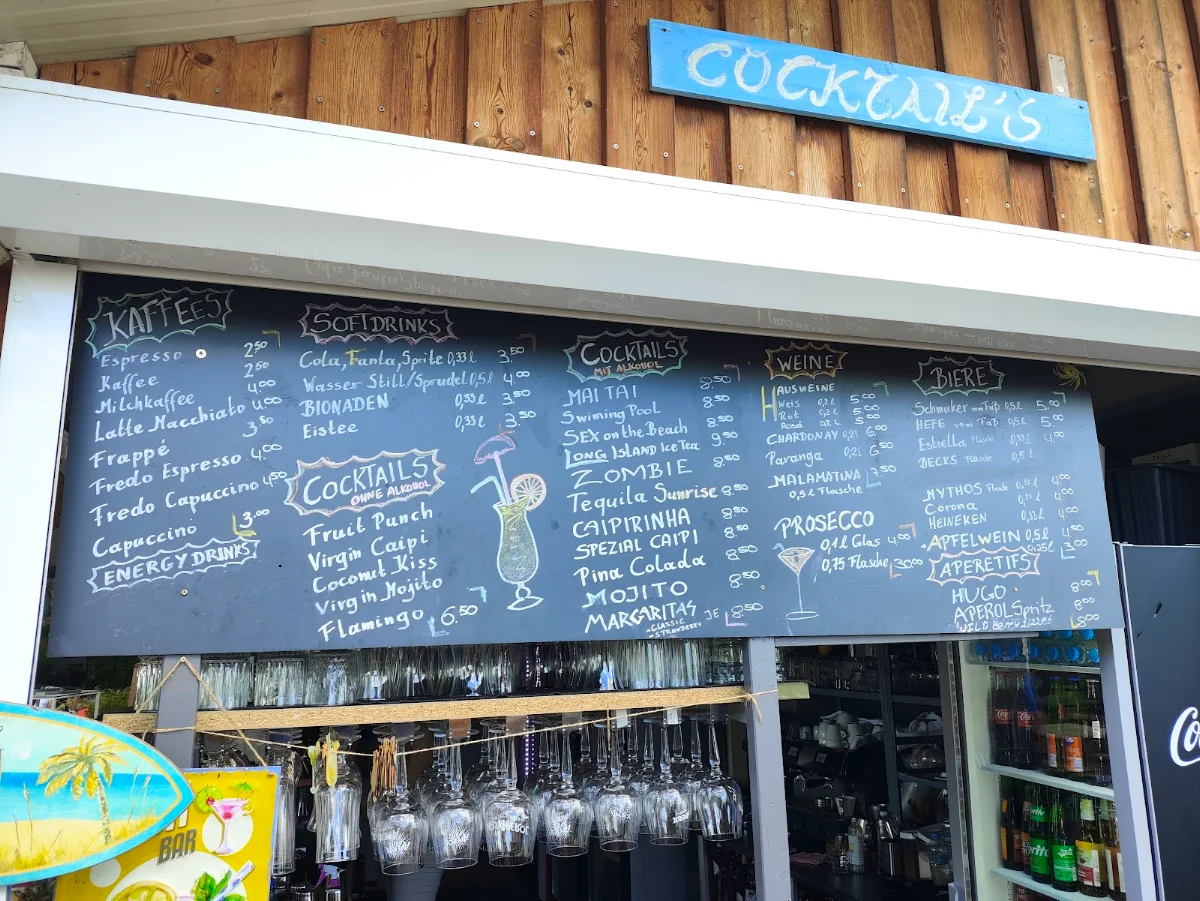 COCKTAIL'S
KAFFEES
Espresso 2.50
Kaffee 2.50
Milchkaffee 4.00
Latte Macchiato 4.00
Frappé 3.50
Fredo Espresso 4.00
Fredo Capuccino 4.50
Capuccino 3.00
ENERGY DRINKS
SOFTDRINKS
Cola, Fanta, Sprite 0,33 l 3.50
Wasser Still/Sprudel 0,5 l 4.00
BIONADEN 0,33 l 3.50
Eistee 0,33 l 3.50
COCKTAILS
OHNE ALKOHOL
Fruit Punch
Virgin Caipi
Coconut Kiss
Virgin Mojito
Flamingo 6.50
COCKTAILS
MIT ALKOHOL
MAI TAI 8.50
Swiming Pool 8.50
SEX on the Beach 8.50
LONG ISLAND Ice Tea 9.50
ZOMBIE 8.50
Tequila Sunrise 8.50
CAIPIRINHA 8.50
SPEZIAL CAIPI 8.50
Pina Colada 8.50
MOJITO 8.50
MARGARITAS JE 8.50
-CLASSIC
-STRAWBERRY
WEINE
HAUSWEINE
Weis 0,2 l 5.00
Rot 0,2 l 5.00
Rosé 0,2 l 5.00
CHARDONAY 0,2 l 6.00
Paranga 0,2 l 6.00
MALAMATINA 7.50
0,5 l Flasche
PROSECCO
0,1 l Glas 4.00
0,75 Flasche 30.00
BIERE
Schmuker vom Faß 0,5 l 5.00
HEFE vom Faß 0,5 l 5.00
Estrella Flasche 0,33 l 4.00
BECKS Flasche 0,5 l
MYTHOS Flasche 0,33 l 4.00
Corona 4.00
HEINEKEN 0,33 l 4.00
APFELWEIN 0,5 l 4.50
0,25 l
APERETIFS
HUGO 8.00
APEROL Spritz 8.00
WILD Berry Lillet 8.00
BAR